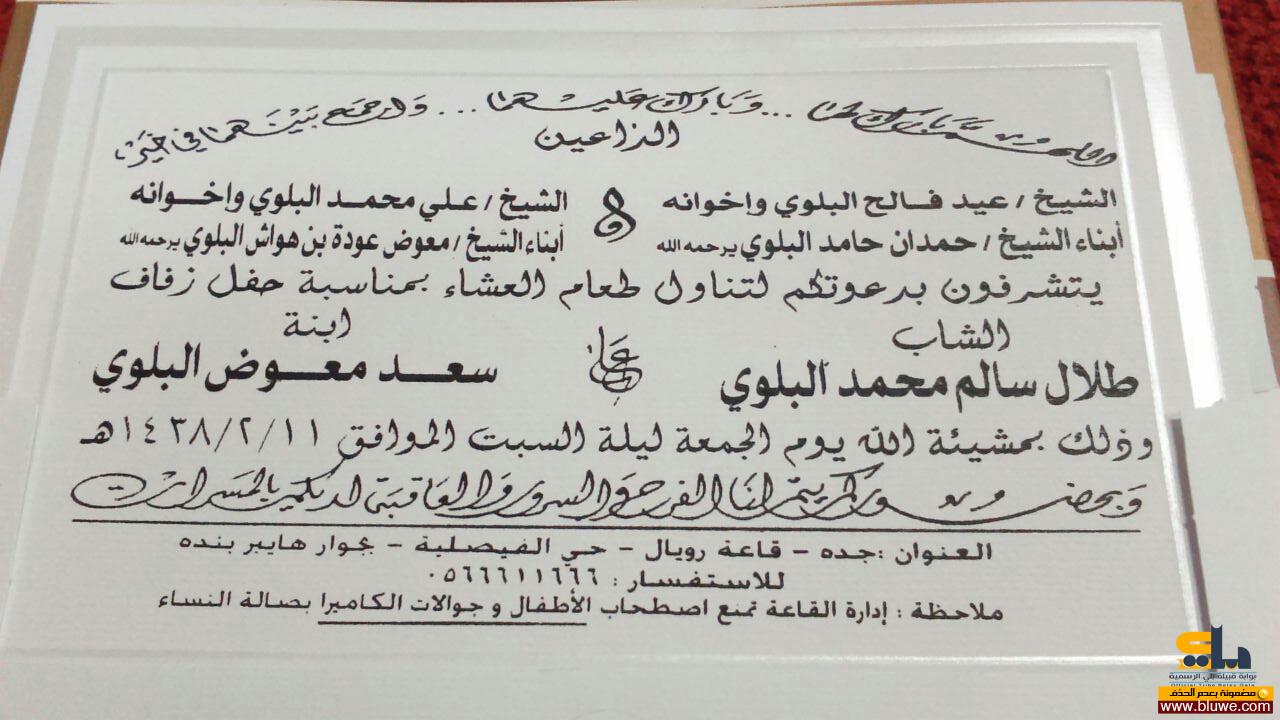 اللهم بارك لهما ... وبارك عليهما ... واجمع بينهما في خير
الداعين
الشيخ / عيد فالح البلوي وإخوانه و الشيخ / علي محمد البلوي وإخوانه
أبناء الشيخ / حمدان حامد البلوي يرحمه الله أبناء الشيخ / معوض عودة بن هواش البلوي يرحمه الله
يتشرفون بدعوتكم لتناول طعام العشاء بمناسبة حفل زفاف
الشاب ابنة
طلال سالم محمد البلوي على سعد معوض البلوي
وذلك بمشيئة الله يوم الجمعة ليلة السبت الموافق ١٤٣٨/٢/١١هـ
وبحضوركم يتم لنا الفرح والسرور والعاقبة لديكم بالمسرات
العنوان : جده - قاعة رويال - حي الفيصلية - بجوار هايبر بنده
للاستفسار : ٠٥٦٦٦١١٦٦٦
ملاحظة : إدارة القاعة تمنع اصطحاب الأطفال و جوالات الكاميرا بصالة النساء
بلي
بوابة قبيلة بلي الرسمية
مضمونة بعدم الحذف
www.bluwe.com